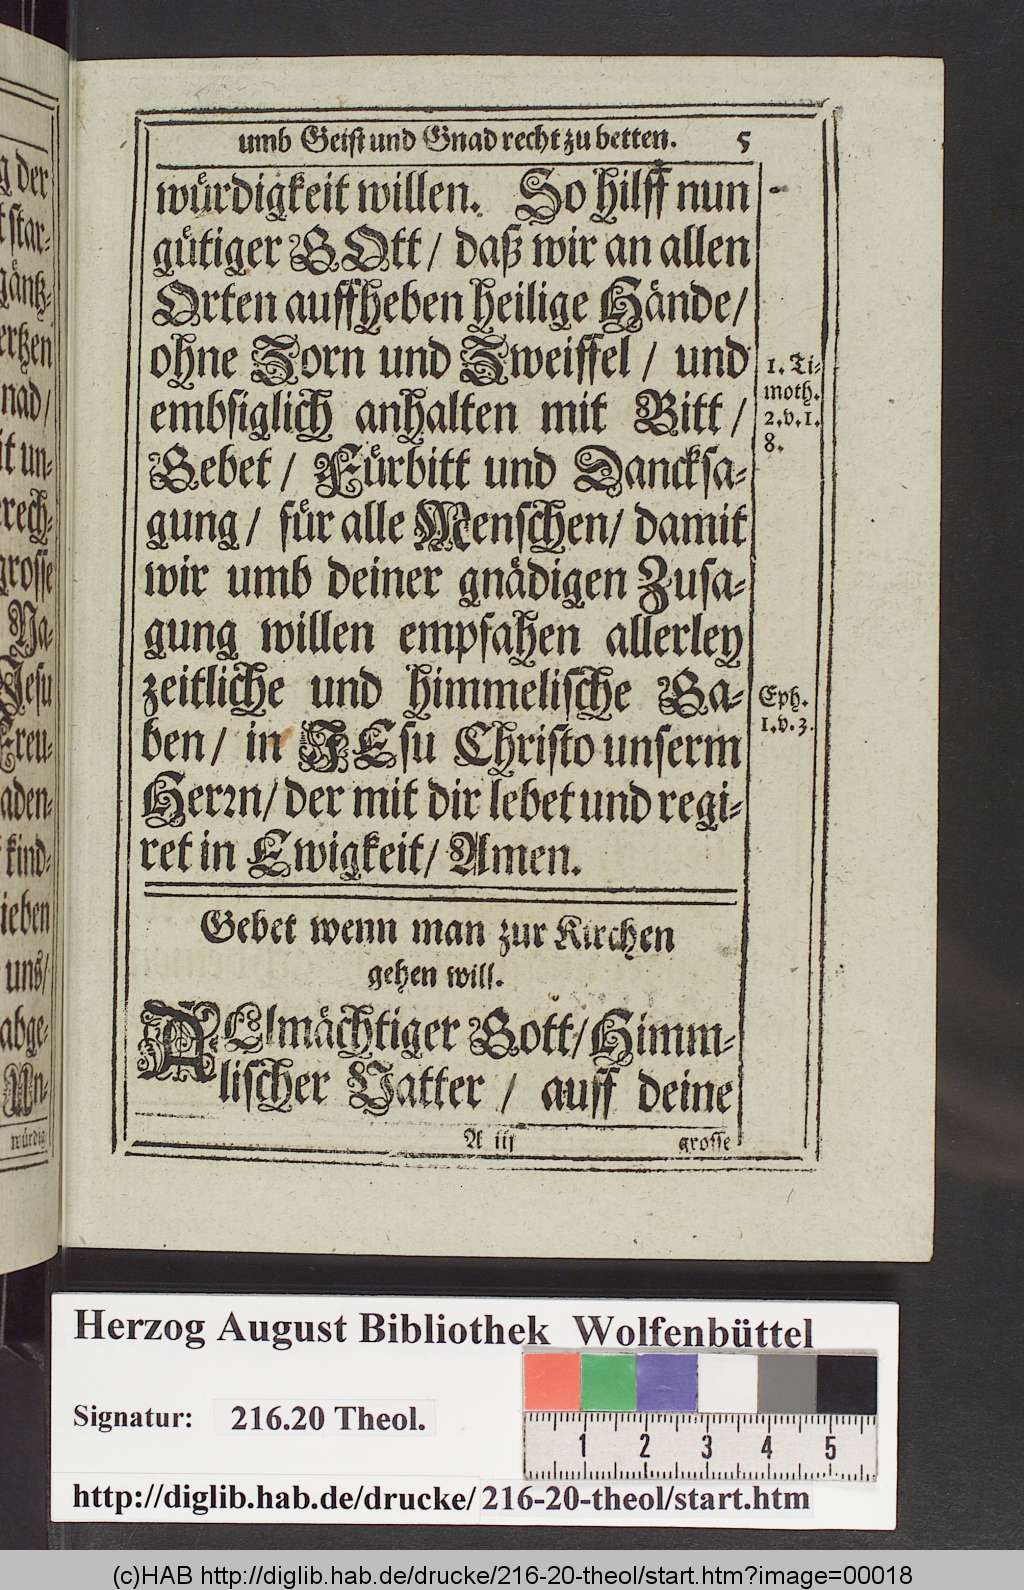 g der
t star-
gäntz-
ertzen
nad/
it un-
rech-
grosse
Na-
Jesu
Freu-
aden-
kind-
ieben
uns/
abge-
Un-
würdig
umb Geist und Gnad recht zu betten. 5
würdigkeit willen. So hilff nun
gütiger GOtt/ daß wir an allen
Orten auffheben heilige Hände/
ohne Zorn und Zweiffel / und
embsiglich anhalten mit Bitt /
Gebet / Fürbitt und Dancksa-
gung/ für alle Menschen/ damit
wir umb deiner gnädigen Zusa-
gung willen empfahen allerley
zeitliche und himmelische Ga-
ben/ in JEsu Christo unserm
Herrn/ der mit dir lebet und regi-
ret in Ewigkeit/ Amen.
1. Ti-
moth.
2.v.1.
8.
Eph.
1.v.3.
Gebet wenn man zur Kirchen
gehen will.
ALlmächtiger Gott/ Himm-
lischer Vatter / auff deine
A iij grosse
Herzog August Bibliothek Wolfenbüttel
Signatur: 216.20 Theol.
1 2 3 4 5
http://diglib.hab.de/drucke/216-20-theol/start.htm
(c)HAB http://diglib.hab.de/drucke/216-20-theol/start.htm?image=00018